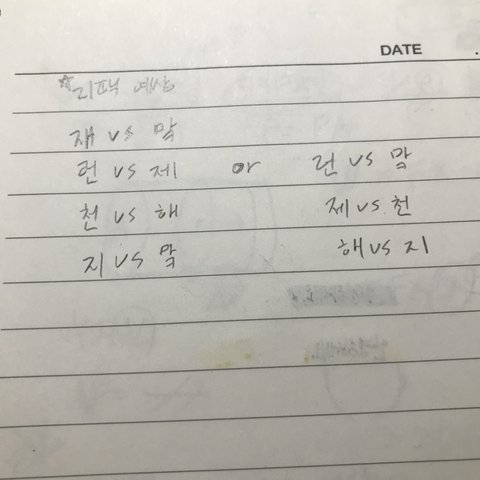 DATE
☆리프북 예상
재 vs 막
런 vs 제 or 런 vs 막
천 vs 해 제 vs 천
지 vs 막 해 vs 지